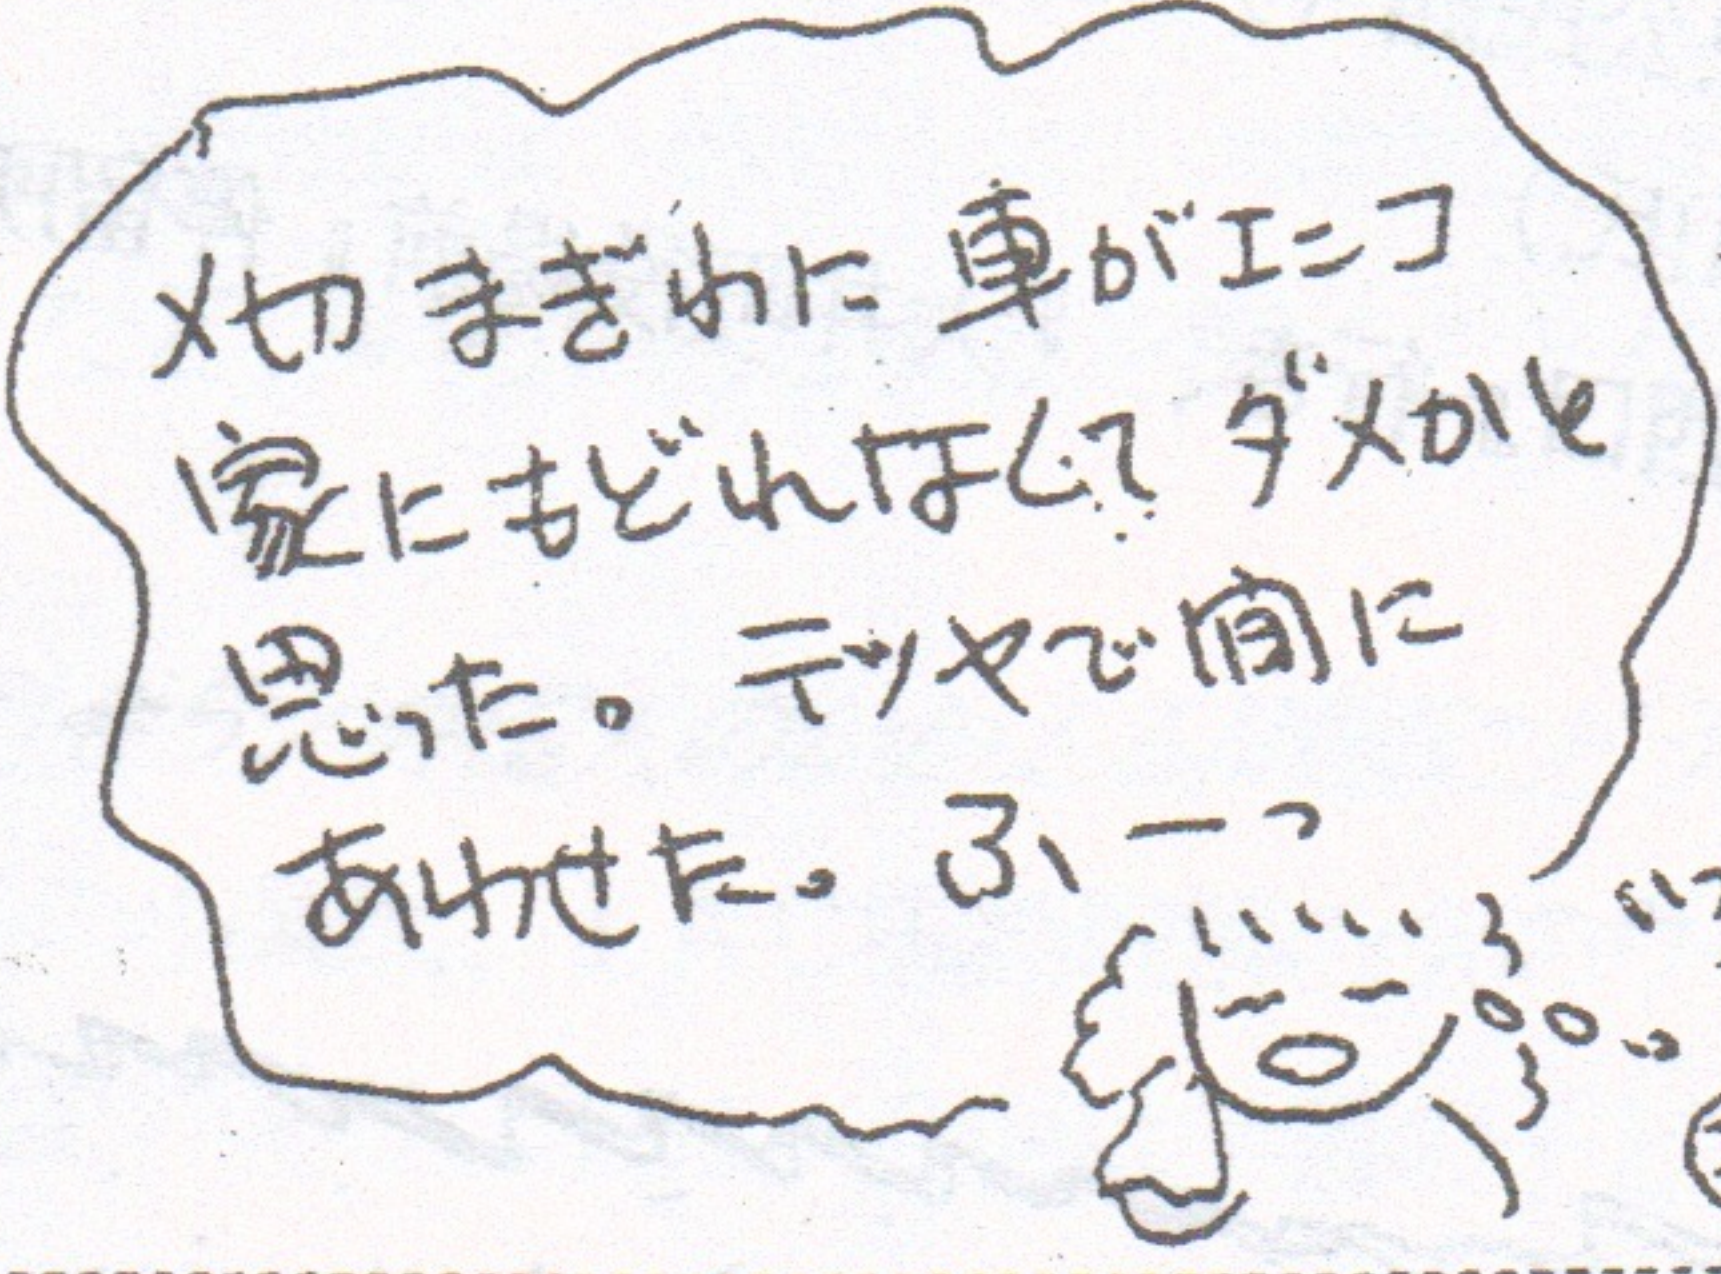 〆切まぎわに車がエンコ
家にもどれなくてダメかと
思った。テツヤで間に
あわせた。ふーっ